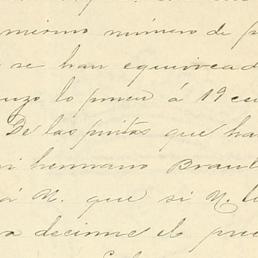 mismo número de p
se han equivocad
lo ponen á 19 cu
De las pintas que ha
mi hermano Braul
á N. que si N. l
a decirme el prec